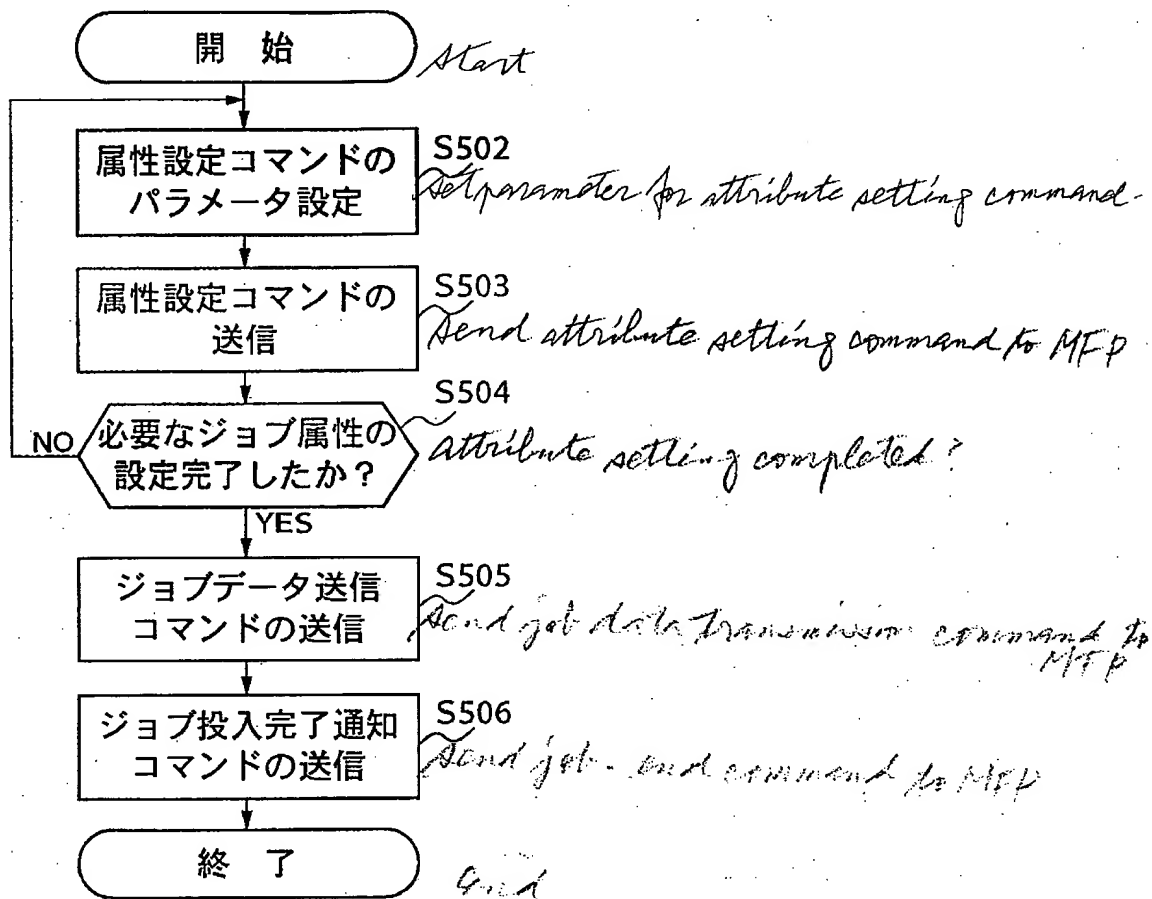 開 始
Start
属性設定コマンドの
パラメータ設定
S502
Set parameter for attribute setting command.
属性設定コマンドの
送信
S503
Send attribute setting command to MFP
必要なジョブ属性の
設定完了したか？
S504
NO
attribute setting completed?
YES
ジョブデータ送信
コマンドの送信
S505
Send job data transmission command to
MFP
ジョブ投入完了通知
コマンドの送信
S506
Send job-end command to MFP
終 了
End